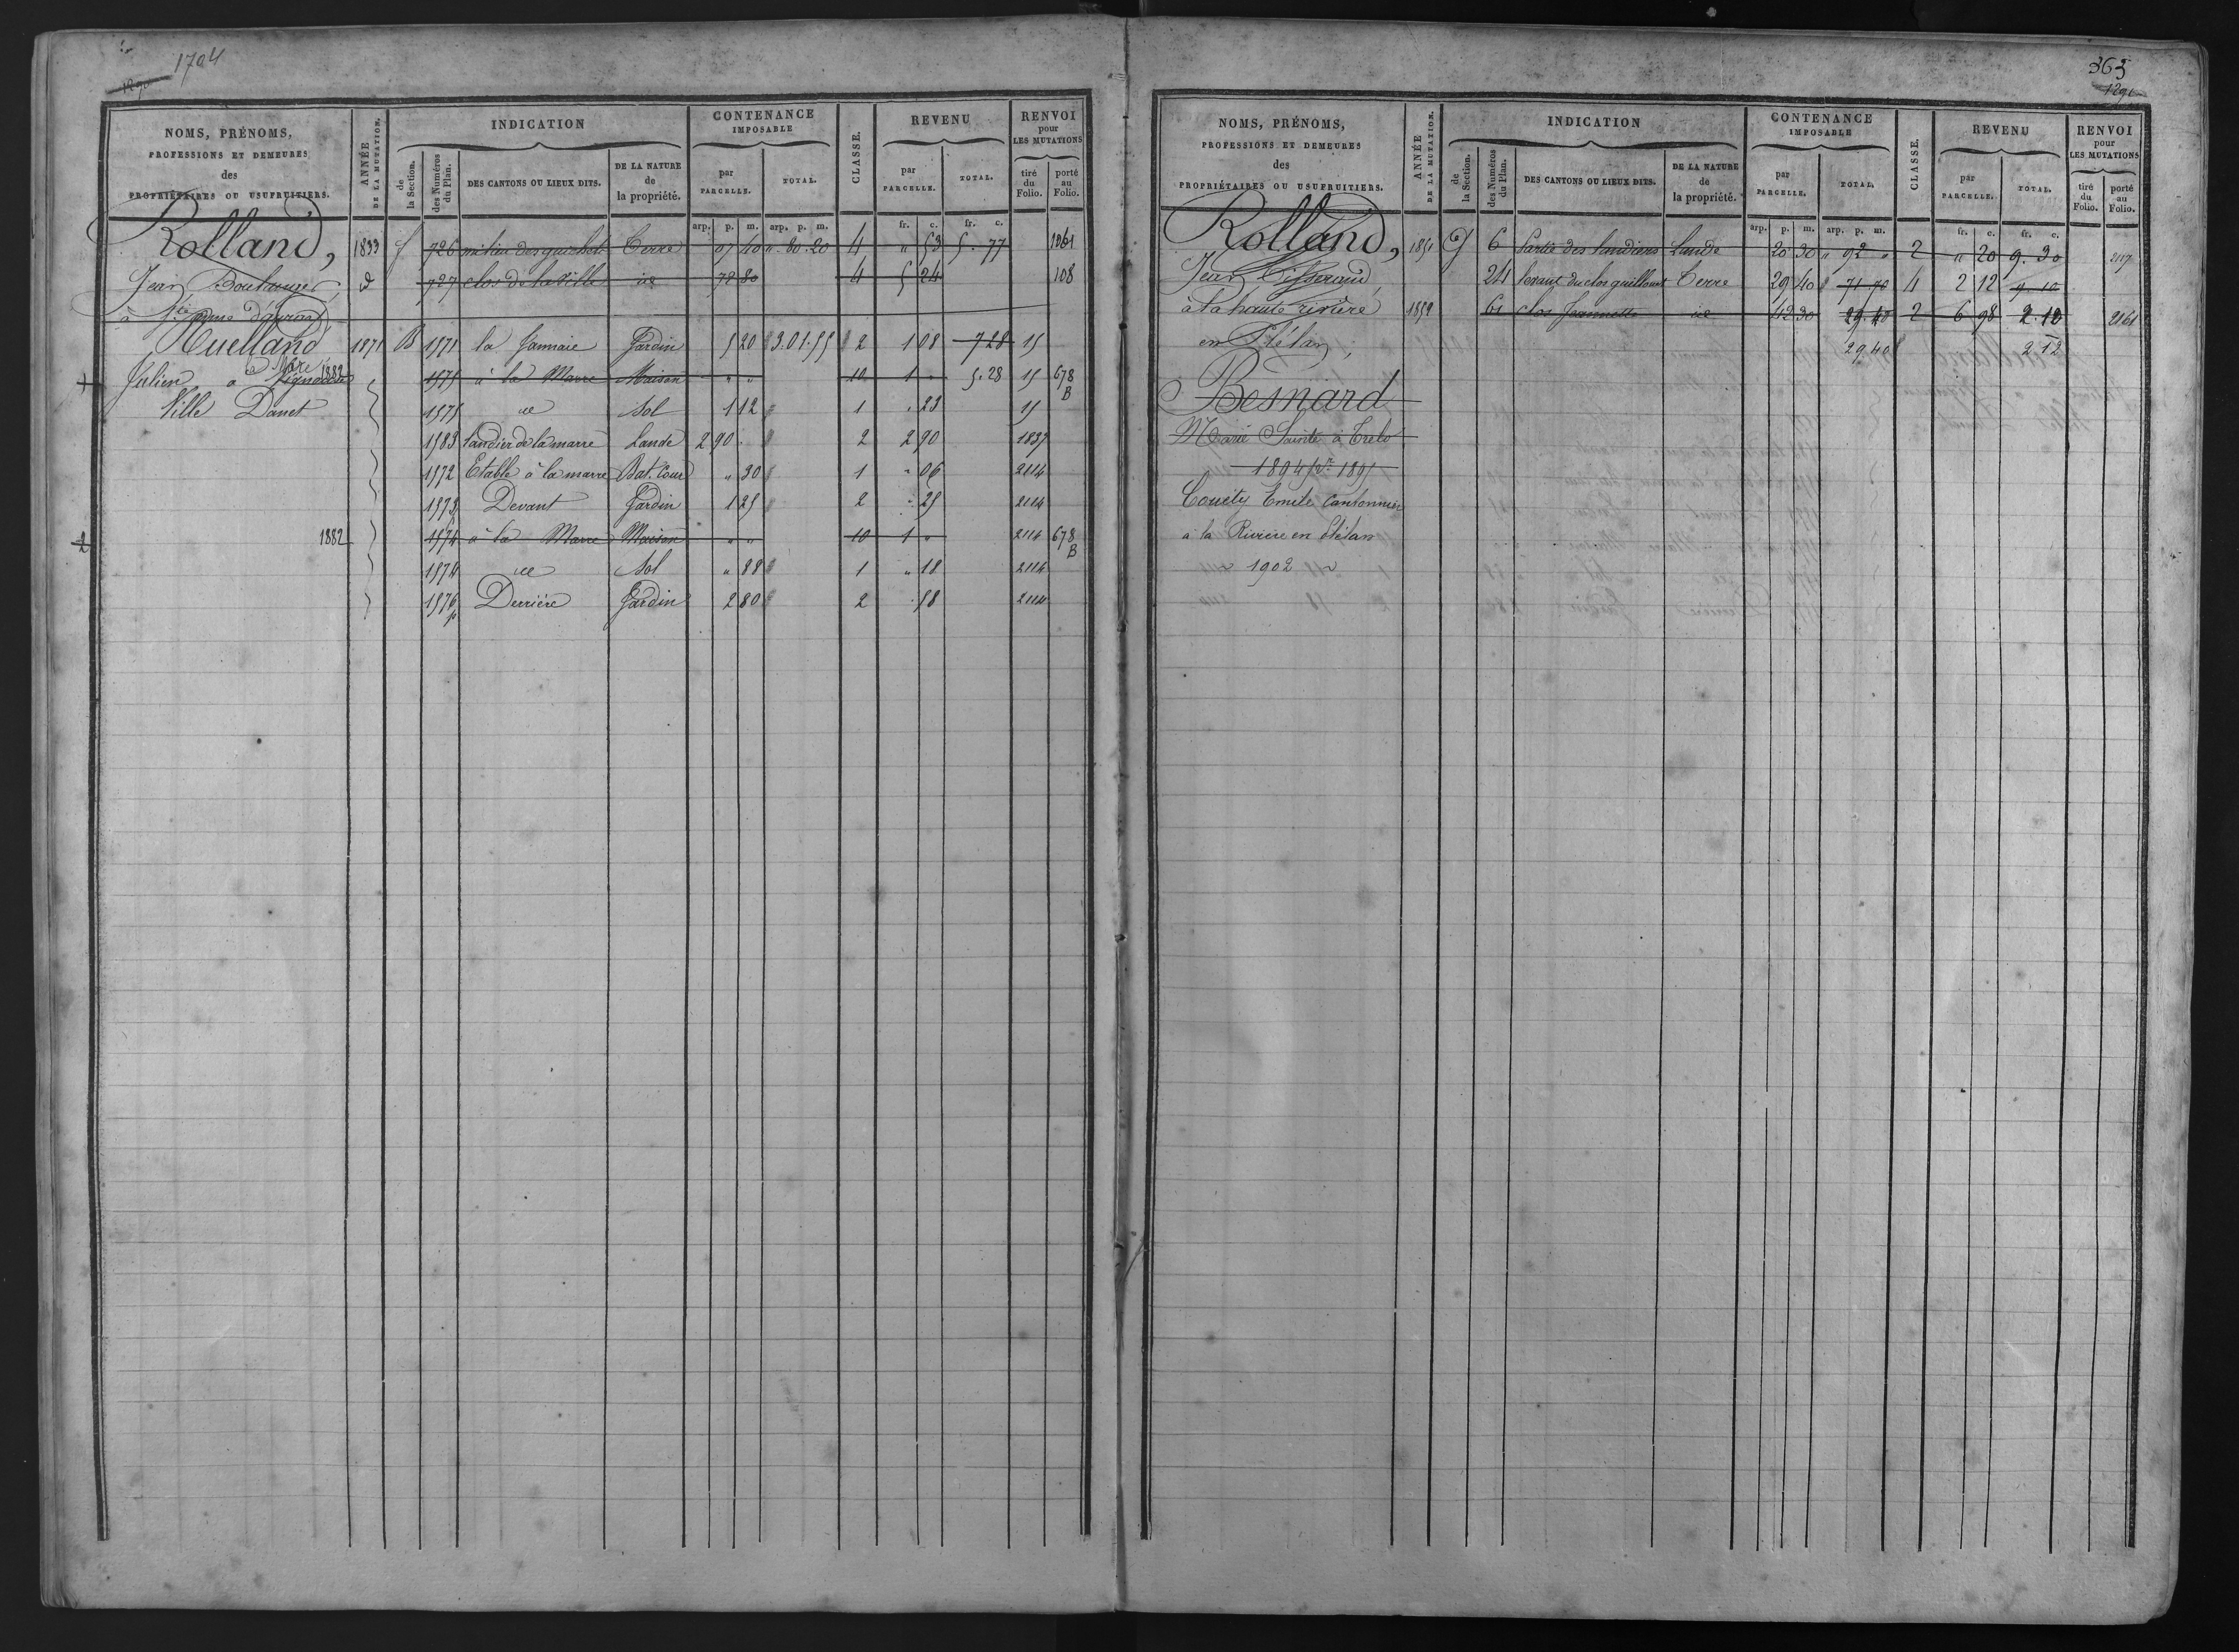 1704
NOMS, PRÉNOMS, PROFESSIONS ET DEMEURES des PROPRIÉTAIRES OU USUFRUITIERS.
ANNÉE DE LA MUTATION.
INDICATION
de la Section.
des Numéros du Plan.
DES CANTONS OU LIEUX DITS.
DE LA NATURE de la propriété.
CONTENANCE IMPOSABLE
par PARCELLE.
TOTAL.
CLASSE.
REVENU
par PARCELLE.
TOTAL.
RENVOI pour LES MUTATIONS
tiré du Folio.
porté au Folio.
arp. p. m. arp. p. m. fr. c. fr. c.
Rolland, 1833 f 726 milieu des Terre 07 40 " 80 20 4 " 53 5. 77 1061
Jean Boulanger, d 727 clos de la ville id 72 80 4 5 24 108
à
Ruelland 1871 B 1571 la Jannaie Jardin 5 20 3.01.55 2 1 08 7 28 15
Julien à la Mare 1882 1575 à la Marre Maison " " 10 1 " 5.28 15 678 B
Ville Danet 1575 id Sol 1 12 1 " 23 15
1583 Landier de la marre Lande 2 90 . 2 2 90 1837
1572 Etable à la marre Bat. Cour " 30 1 " 06 2114
1573 Devant Jardin 1 25 2 " 25 2114
1882 1574 à la Marre Maison " " 10 1 " 2114 678 B
1574 id Sol " 88 1 " 18 2114
1576 p Derrière Jardin 2 80 2 . 58 2114
363
1291
NOMS, PRÉNOMS, PROFESSIONS ET DEMEURES des PROPRIÉTAIRES OU USUFRUITIERS.
ANNÉE DE LA MUTATION.
INDICATION
de la Section.
des Numéros du Plan.
DES CANTONS OU LIEUX DITS.
DE LA NATURE de la propriété.
CONTENANCE IMPOSABLE
par PARCELLE.
TOTAL.
CLASSE.
REVENU
par PARCELLE.
TOTAL.
RENVOI pour LES MUTATIONS
tiré du Folio.
porté au Folio.
arp. p. m. arp. p. m. fr. c. fr. c.
Rolland, G 6 Partie des landiers Lande 20 30 " 92 " 2 " 20 9. 30 2117
Jean Tisserand, 241 levant du clos Terre 29 40 71 70 4 2 12 9. 10
à la haute rivière 1852 61 clos Jeannette id 42 30 29. 40 2 6 98 2. 12 2161
en Plélan, 29 40 2 12
Besnard
Marie Sainte à Trelo
1894
Couëty Emile Cantonnier
à la Rivière en Plélan
1902